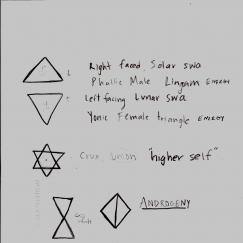 Right faced Solar swa
Phallic Male Lingam ENERGY
Left facing Lunar Swa
Yonic Female triangle ENERGY
union "higher self"
ANDROGENY